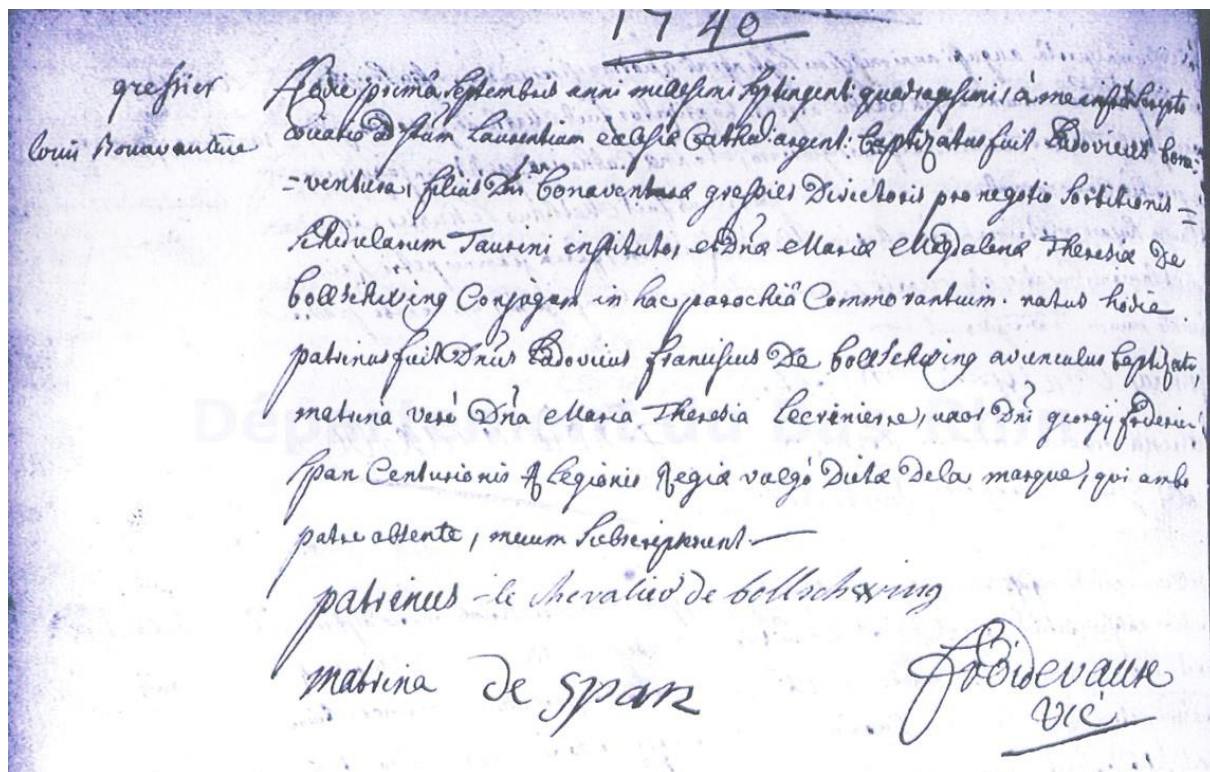 1740
greffier
louis Bonavanture
Hodie prima septembris anni millesimi septingenti quadragesimi, à me infra scripto
vicario ad stum Laurentium ecclesiæ Cathed: argent: baptizatus fuit Ludovicus bona-
=ventura, filius Dni bonaventuræ greffier Directoris pro negotio sortitionis =
schedularum Taurini instituto, et Dnæ Mariæ Magdalenæ Theresiæ De
bollschwing Conjugum in hac parochiâ Commorantium. natus hodie
patrinus fuit Dnus Ludovicus franciscus De bollschwing avunculus baptizati,
matrina verò Dna Maria Theresia Lecrinierre, uxor Dni georgy friderici
span Centurionis Legionis Regiæ vulgò Dictæ Dela marque, qui ambo
patre absente, mecum subscripserunt —
patrinus - le chevalier de bollschwing
matrina De Span
froidevaux
vic
Département du Bas-Rhin